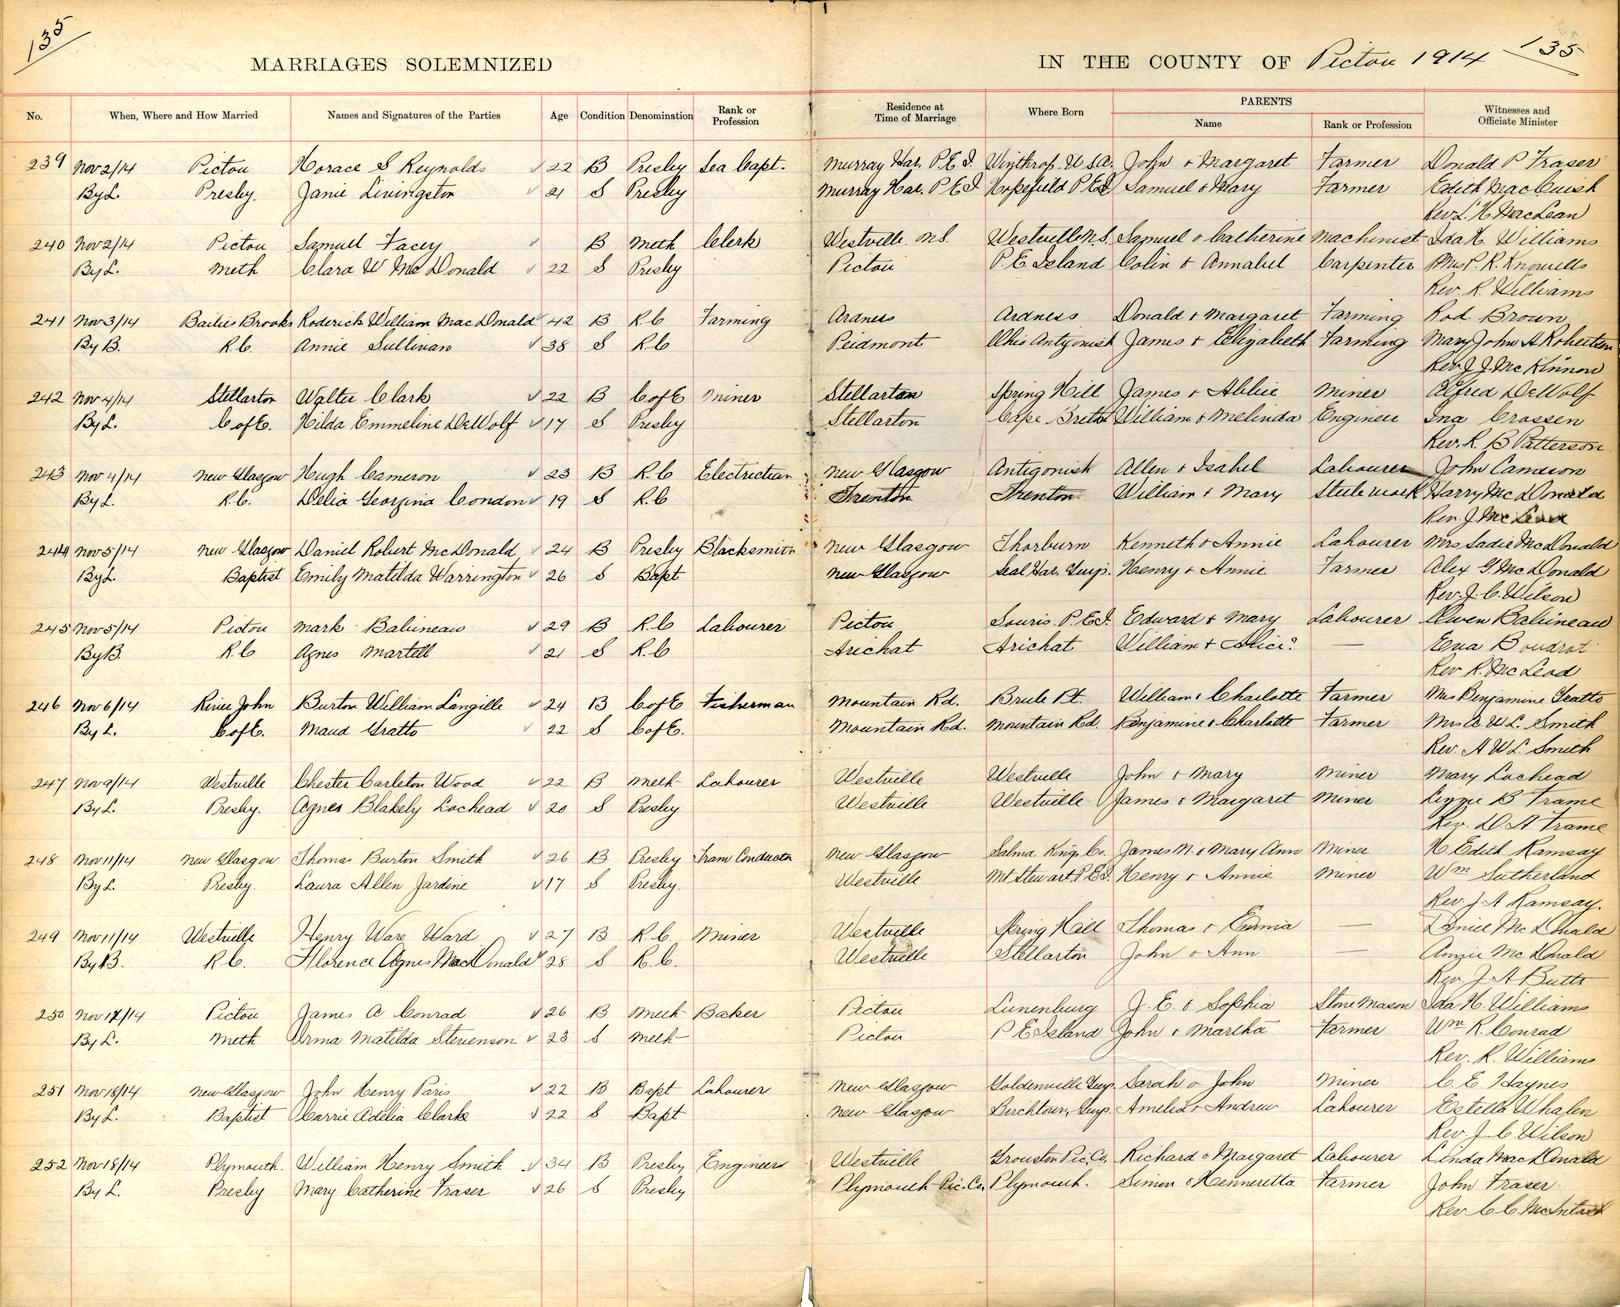 135
MARRIAGES SOLEMNIZED IN THE COUNTY OF Pictou 1914 135
No. When, Where and How Married Names and Signatures of the Parties Age Condition Denomination Rank or Profession Residence at Time of Marriage Where Born PARENTS Name Rank or Profession Witnesses and Officiate Minister
239 Nov 2/14 Pictou Horace S Reynolds 22 B Presby Sea Capt. Murray Har. P.E.I Winthrop. U.S.A. John & Margaret Farmer Donald P Fraser
By L. Presby. Janie Livingston 21 S Presby Murray Har. P.E.I P.E.I Samuel & Mary Farmer Edith MacCuish
Rev. L. H. MacLean
240 Nov 2/14 Pictou Samuel Facey B Meth Clerk Westville N.S. Westville N.S. Samuel & Catherine Machinist Ida H. Williams
By L. Meth Clara W McDonald 22 S Presby Pictou P.E. Island Colin & Annabel Carpenter Mrs P. R. Knowells
Rev. R. Williams
241 Nov 3/14 Bailies Brooks Roderick William MacDonald 42 B R.C Farming Ardness Ardness Donald & Margaret Farming Rod Brown
By B. R.C. Annie Sullivan 38 S R.C Peidmont Ohio Antigonish James & Elizabeth Farming Mary John A Robertson
Rev. J. J. McKinnon
242 Nov 4/14 Stellarton Walter Clark 22 B C of E Miner Stellarton Spring Hill James & Abbie Miner Alfred DeWolf
By L. C of E. Hilda Emmeline DeWolf 17 S Presby Stellarton Cape Breton William & Melinda Engineer Ina Crossen
Rev. R. B Patterson
243 Nov 4/14 New Glasgow Hugh Cameron 23 B R.C Electrician New Glasgow Antigonish Allen & Isabel Labourer John Cameron
By L. R.C. Delia Georgina Condon 19 S R.C Trenton Trenton William & Mary Steelwork Harry McDonald
Rev. J. McLeod
244 Nov 5/14 New Glasgow Daniel Robert McDonald 24 B Presby Blacksmith New Glasgow Thorburn Kenneth & Annie Labourer Mrs Sadie McDonald
By L. Baptist Emily Matilda Warrington 26 S Bapt New Glasgow Seal Har. Guys. Henry & Annie Farmer Alex G. McDonald
Rev. J. C. Wilson
245 Nov 5/14 Pictou Mark Babineau 29 B R.C Labourer Pictou Souris P.E.I. Edward & Mary Labourer Owen Babineau
By B. R.C Agnes Martell 21 S R.C Arichat Arichat William & Alice? — Ena Boudrot
Rev. R. McLeod
246 Nov 6/14 River John Burton William Langille 24 B C of E Fisherman Mountain Rd. Brule Pt. William & Charlotte Farmer Mrs Benjamine Gratto
By L. C of E. Maud Gratto 22 S C of E. Mountain Rd. Mountain Rd. Benjamine & Charlotte Farmer Mrs A W L. Smith
Rev. A W L Smith
247 Nov 9/14 Westville Chester Carleton Wood 22 B Meth Labourer Westville Westville John & Mary Miner Mary Lochead
By L. Presby. Agnes Blakely Lochead 20 S Presby Westville Westville James & Margaret Miner Lizzie B Frame
Rev. D A Frame
248 Nov 11/14 New Glasgow Thomas Burton Smith 26 B Presby Tram Conductor New Glasgow Salma Kings Co. James N. & Mary Ann Miner H. Edith Ramsay
By L. Presby. Laura Allen Jardine 17 S Presby. Westville Mt Stewart P.E.I. Henry & Annie Miner Wm Sutherland
Rev. J A Ramsay.
249 Nov 11/14 Westville Henry Ware Ward 27 B R.C. Miner Westville Spring Hill Thomas & — McDonald
By B. R.C. Florence Agnes MacDonald 28 S R.C. Westville Stellarton John & Ann — Annie McDonald
Rev. J. A Butts
250 Nov 17/14 Pictou James A Conrad 26 B Meth Baker Pictou Lunenburg J. E. & Sophia Stone Mason Ida H Williams
By L. Meth Urma Matilda Stevenson 23 S Meth Pictou P.E. Island John & Martha Farmer Wm R. Conrad
Rev. R. Williams
251 Nov 18/14 New Glasgow John Henry Paris 22 B Bapt Labourer New Glasgow Goldenville Guys. Sarah & John Miner C. E. Haynes
By L. Baptist Carrie Adelia Clark 22 S Bapt New Glasgow Birchtown, Guys. Amelia & Andrew Labourer Estella Whalen
Rev. J. C. Wilson
252 Nov 18/14 Plymouth. William Henry Smith 34 B Presby Engineer Westville Pic. Co. Richard & Margaret Labourer Linda MacDonald
By L. Presby Mary Catherine Fraser 26 S Presby Plymouth Pic. Co. Plymouth. Simon & Henneretta Farmer John Fraser
Rev. C. C. McIntosh